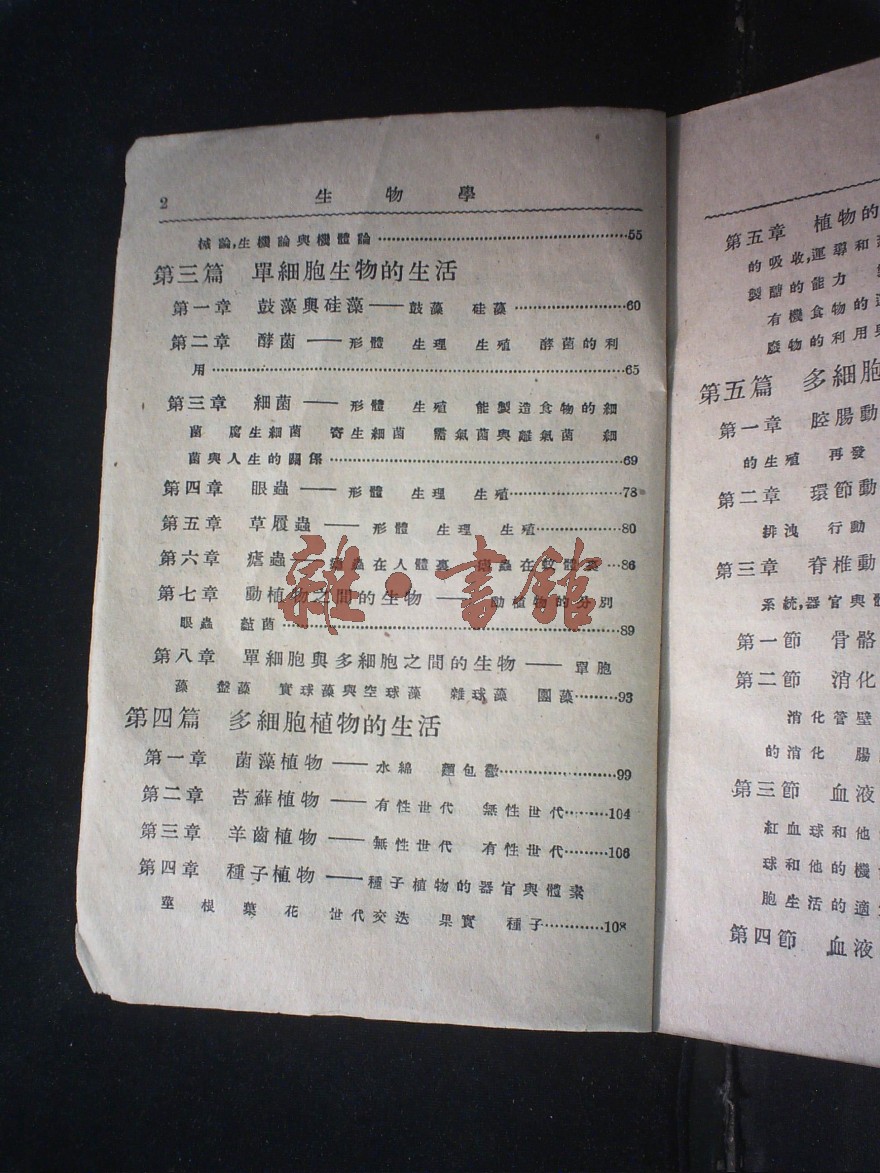 2 生物學
械論,生機論與機體論……55
第三篇 單細胞生物的生活
第一章 鼓藻與硅藻——鼓藻 硅藻……60
第二章 酵菌——形體 生理 生殖 酵菌的利
用……65
第三章 細菌——形體 生殖 能製造食物的細
菌 腐生細菌 寄生細菌 需氣菌與離氣菌 細
菌與人生的關係……69
第四章 眼蟲——形體 生理 生殖……78
第五章 草履蟲——形體 生理 生殖……80
第六章 瘧蟲——瘧蟲在人體裏 瘧蟲在蚊體裏…86
第七章 動植物之間的生物——動植物的分別
眼蟲 黏菌……89
第八章 單細胞與多細胞之間的生物——單胞
藻 盤藻 實球藻與空球藻 雜球藻 團藻……93
第四篇 多細胞植物的生活
第一章 菌藻植物——水綿 麵包黴……99
第二章 苔蘚植物——有性世代 無性世代……104
第三章 羊齒植物——無性世代 有性世代……106
第四章 種子植物——種子植物的器官與體素
莖 根 葉 花 世代交迭 果實 種子……108
雜·書館
第五章 植物的
的吸收,運導和
製醣的能力
有機食物的
廢物的利用與
第五篇 多細胞
第一章 腔腸動
的生殖 再發
第二章 環節動
排洩 行動
第三章 脊椎動
系統,器官與體
第一節 骨骼
第二節 消化
消化管壁
的消化 腸
第三節 血液
紅血球和他
球和他的機
胞生活的適
第四節 血液